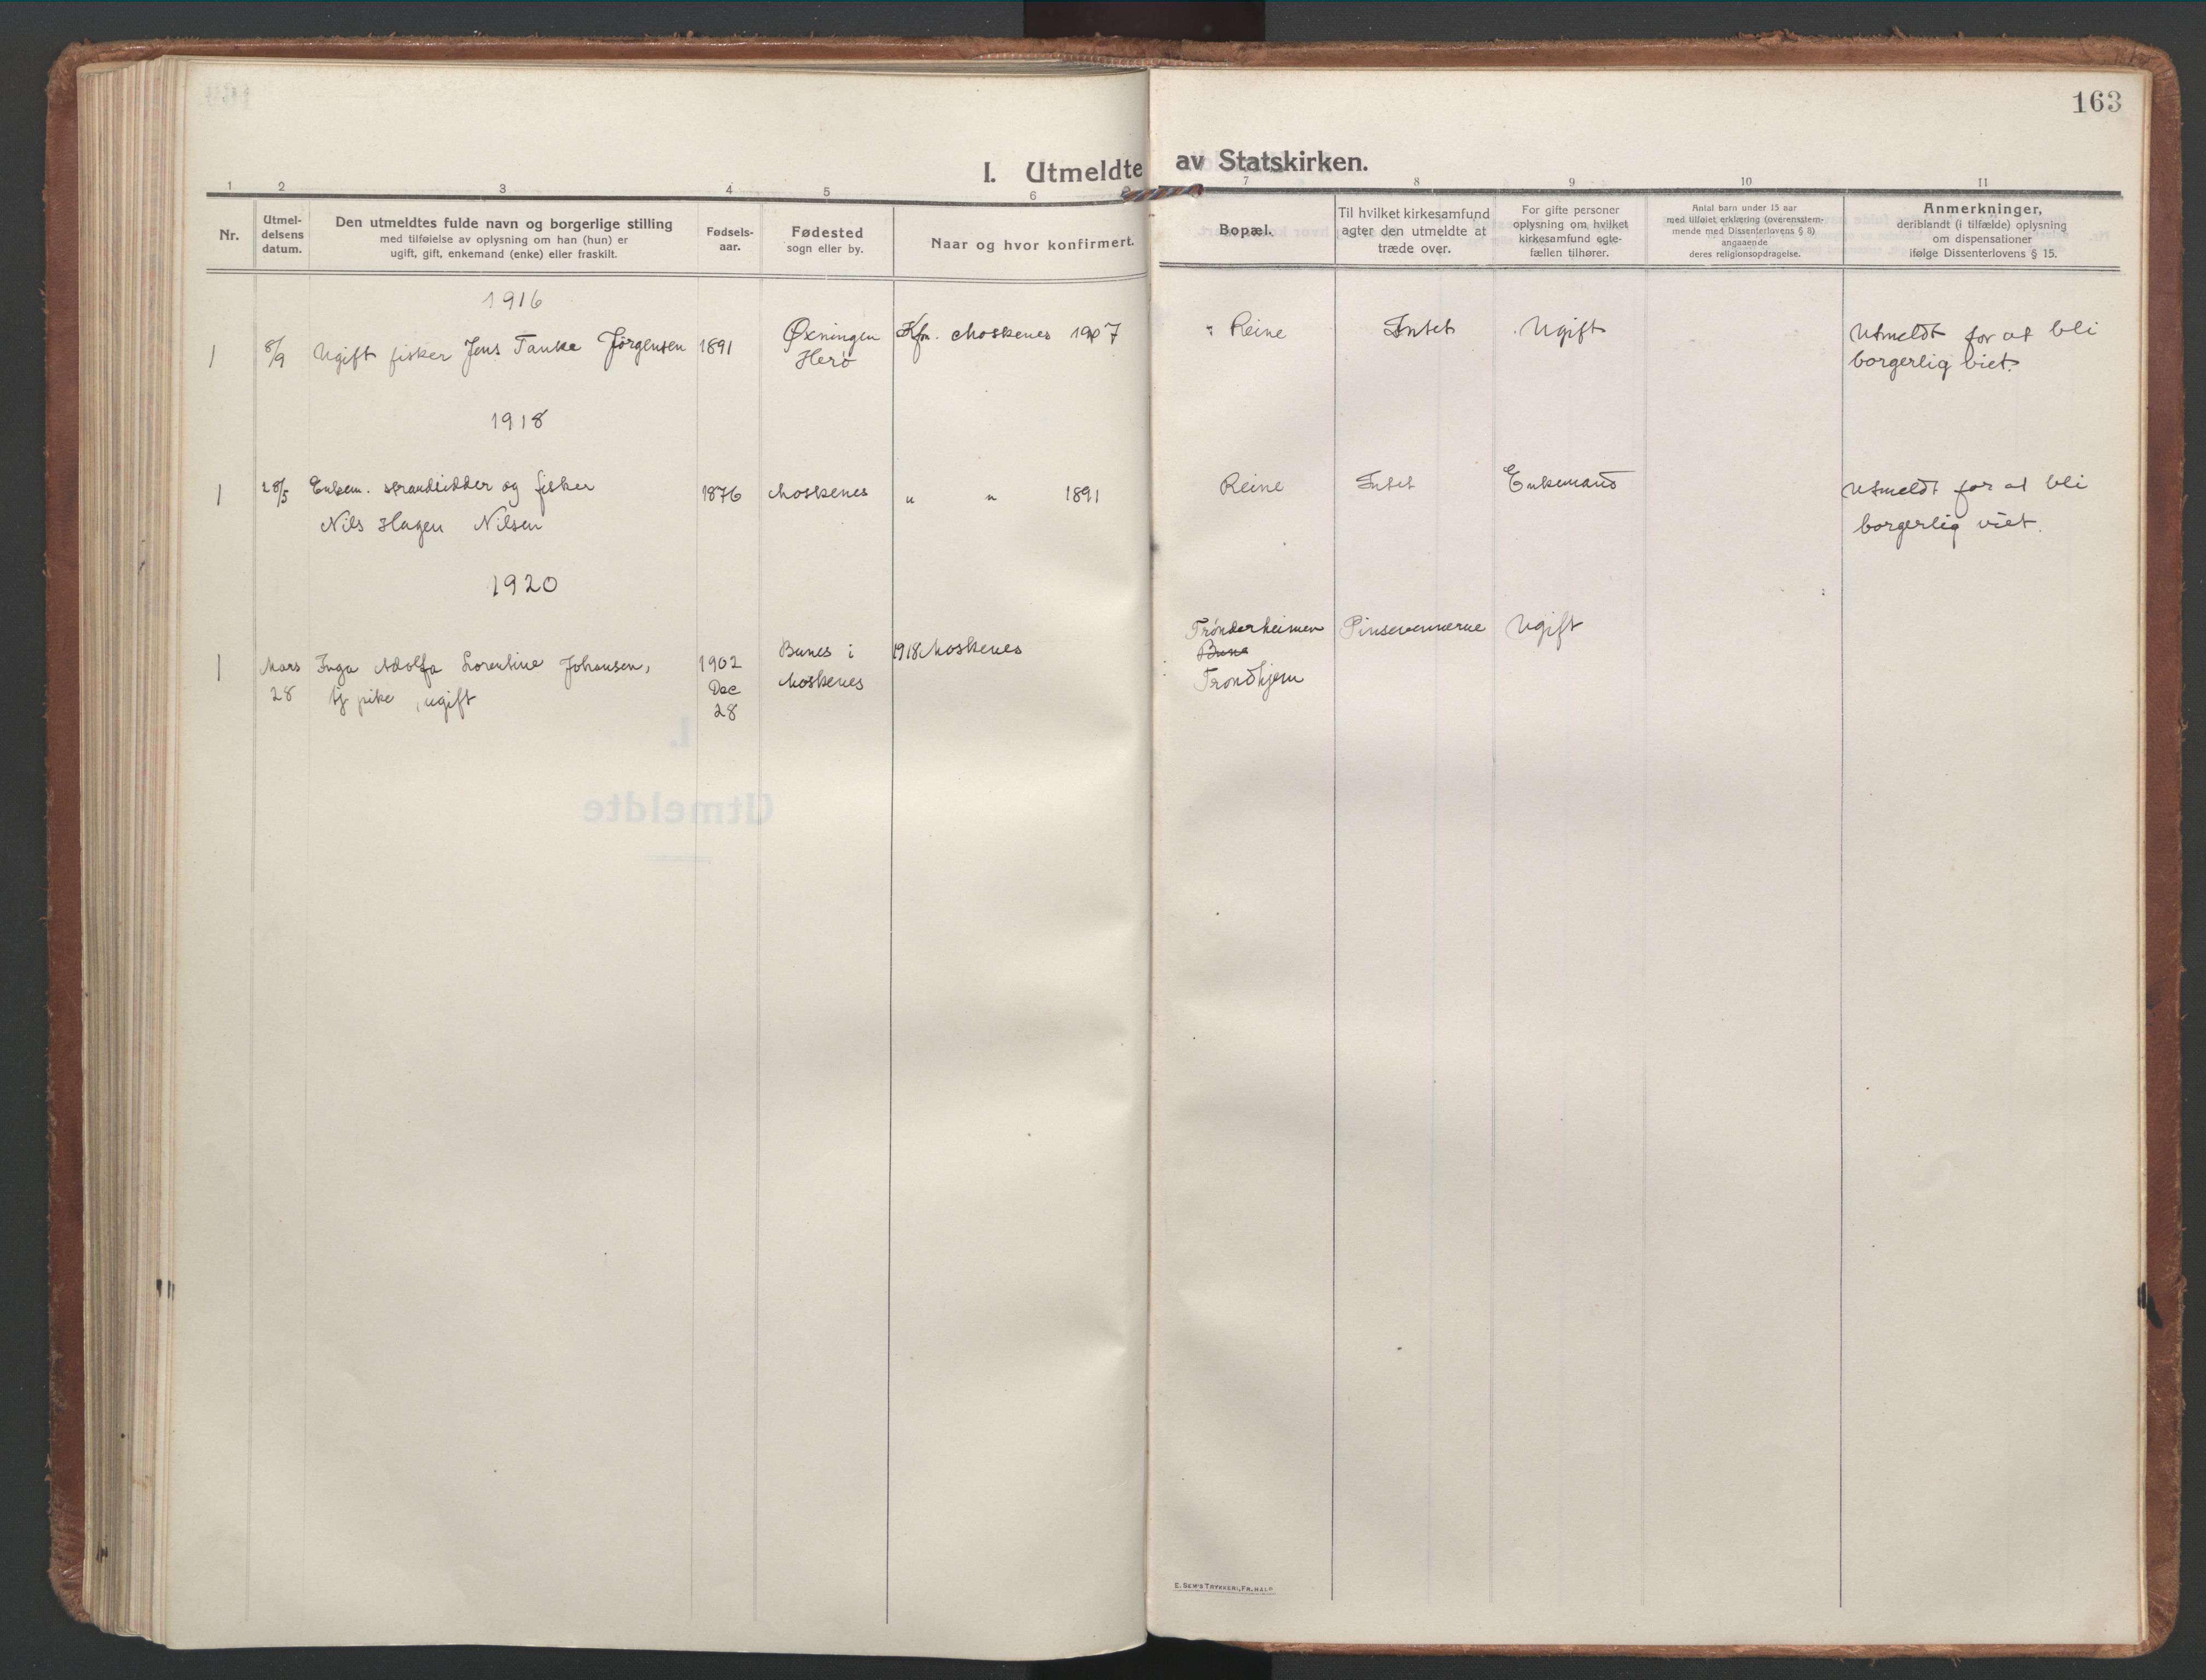 163
I. Utmeldte av Statskirken.
1 2 3 4 5 6 7 8 9 10 11
Nr.
Utmel-
delsens
datum.
Den utmeldtes fulde navn og borgerlige stilling
med tilføielse av oplysning om han (hun) er
ugift, gift, enkemand (enke) eller fraskilt.
Fødsels-
aar.
Fødested
sogn eller by.
Naar og hvor konfirmert.
Bopæl.
Til hvilket kirkesamfund
agter den utmeldte at
træde over.
For gifte personer
oplysning om hvilket
kirkesamfund egte-
fællen tilhører.
Antal barn under 15 aar
med tilføiet erklæring (overensstem-
mende med Dissenterlovens § 8)
angaaende
deres religionsopdragelse.
Anmerkninger,
deriblandt (i tilfælde) oplysning
om dispensationer
ifølge Dissenterlovens § 15.
1916
1 8/9 Ugift fisker Jens Tanke Jørgensen 1891
Øxningen
Herø
Kfn. Moskenes 1907
Reine
Intet
Ugift
Utmeldt for at bli
borgerlig viet.
1918
1 28/5 Enkem. strandsidder og fisker
Nils Hagen Nilsen
1876 Moskenes " " 1891
Reine
Intet
Enkemand
Utmeldt for at bli
borgerlig viet.
1920
1 Mars
28
Inga Adolfa Lorentine Johansen,
tj pike, ugift
1902
Dec
28
Bunes i
Moskenes
1918 Moskenes
Trønderheimen
Bune
Trondhjem
Pinsevennerne
Ugift
I.
Utmeldte
E. SEM'S TRYKKERI, FR.HALD